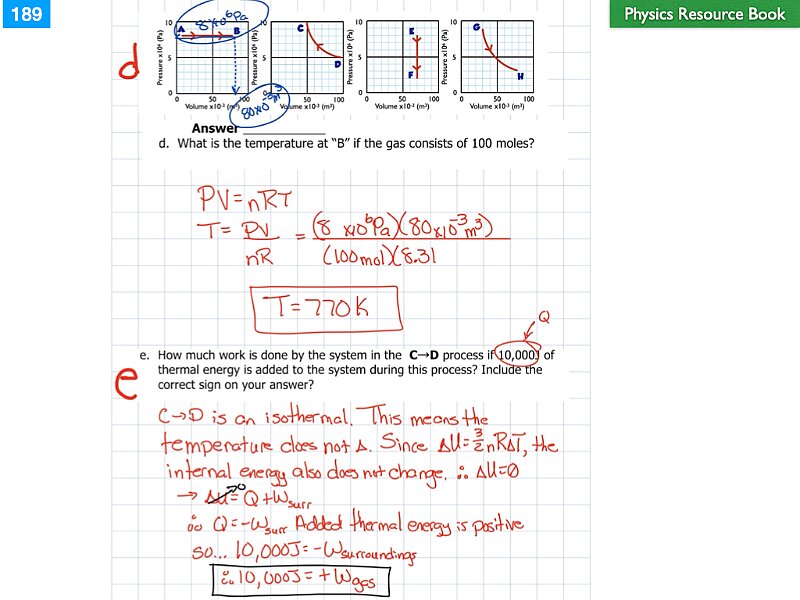 189
Physics Resource Book
d
8x10⁶Pa
10
5
0
50
100
A
B
Pressure x10⁶ (Pa)
Volume x10⁻³ (m³)
80x10⁻³m³
10
5
0
50
100
C
D
Pressure x10⁶ (Pa)
Volume x10⁻³ (m³)
10
5
0
50
100
E
F
Pressure x10⁶ (Pa)
Volume x10⁻³ (m³)
10
5
0
50
100
G
H
Pressure x10⁶ (Pa)
Volume x10⁻³ (m³)
Answer
d. What is the temperature at “B” if the gas consists of 100 moles?
PV=nRT
T= PV/nR = (8 x10⁶Pa)(80x10⁻³m³)/(100mol)(8.31
T=770K
Q
e
e. How much work is done by the system in the C→D process if 10,000J of
thermal energy is added to the system during this process? Include the
correct sign on your answer?
C→D is an isothermal. This means the
temperature does not Δ. Since ΔU=3/2nRΔT, the
internal energy also does not change. ∴ ΔU=0
→ ΔU=Q+Wsurr
0
∴ Q=-Wsurr Added thermal energy is positive
so... 10,000J=-Wsurroundings
∴ 10,000J=+Wgas